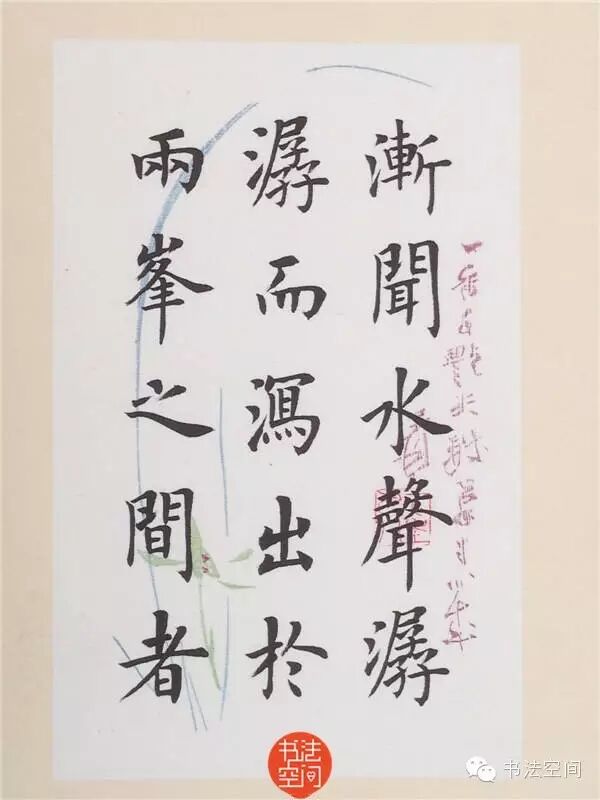 漸聞水聲潺
潺而瀉出於
兩峯之間者
书法空间
书法空间